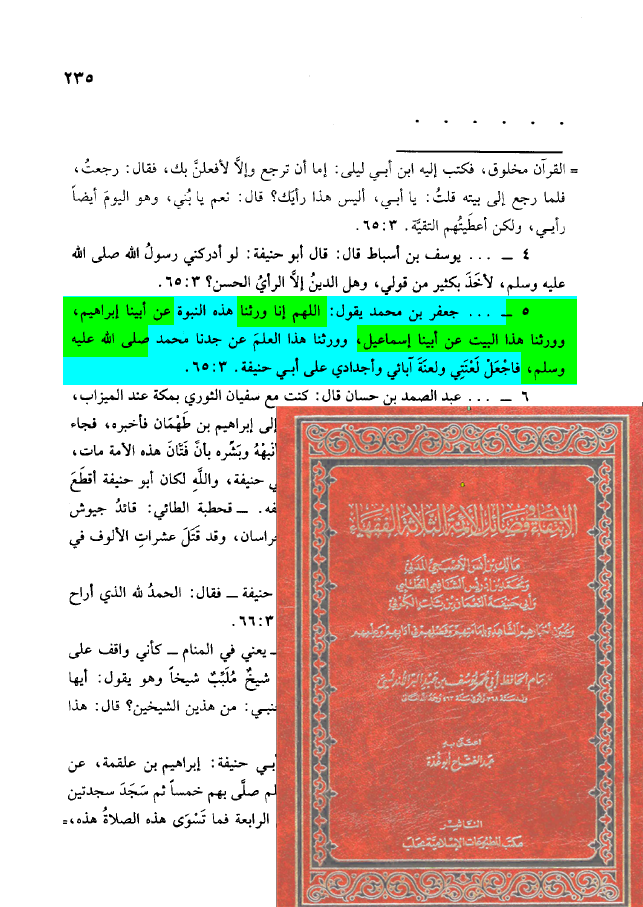 ٢٣٥
. . . . . .
= القرآن مخلوق، فكتب إليه ابن أبي ليلى: إما أن ترجع وإلَّا لأفعلنَّ بك، فقال: رجعتُ،
فلما رجع إلى بيته قلتُ: يا أبي، أليس هذا رأيَك؟ قال: نعم يا بُني، وهو اليومَ أيضاً
رأيـي، ولكن أعطَيتُهم التقيَّة. ٣: ٦٥.
٤ ــ ... يوسف بن أسباط قال: قال أبو حنيفة: لو أدركني رسولُ الله صلى الله
عليه وسلم، لأخَذَ بكثير من قولي، وهل الدينُ إلَّا الرأيُ الحسن؟ ٣: ٦٥.
٥ ــ ... جعفر بن محمد يقول: اللهم إنا ورثنا هذه النبوة عن أبينا إبراهيم،
وورثنا هذا البيت عن أبينا إسماعيل، وورثنا هذا العلمَ عن جدنا محمد صلى الله عليه
وسلم، فاجْعَلْ لَعْنَتِي ولعنَةَ آبائي وأجدادي على أبي حنيفة. ٣: ٦٥.
٦ ــ ... عبد الصمد بن حسان قال: كنت مع سفيان الثوري بمكة عند الميزاب،
إلى إبراهيم بن طَهْمَان فأخبره، فجاء
وبَشِّره بأنَّ فَتَّانَ هذه الأمة مات،
حنيفة، واللَّهِ لكان أبو حنيفة أقطَعَ
ــ قحطبة الطائي: قائدُ جيوش
وقد قَتَلَ عشراتِ الألوف في
حنيفة ــ فقال: الحمدُ لله الذي أراح
٣: ٦٦.
ــ يعني في المنام ــ كأني واقف على
شيخٌ مُلَبِّبٌ شيخاً وهو يقول: أيها
من هذين الشيخين؟ قال: هذا
حنيفة: إبراهيم بن علقمة، عن
صلَّى بهم خمساً ثم سَجَدَ سجدتين
الرابعة فما تَسْوَى هذه الصلاةُ هذه، =
الانتقاء في فضائل الأئمة الثلاثة الفقهاء
مالك بن أنس الأصبحي المدني
ومحمد بن إدريس الشافعي المطلبي
وأبي حنيفة النعمان بن ثابت الكوفي
وعيون أخبارهم الشاهدة بإمامتهم وفضلهم في آدابهم وعلمهم
الحافظ أبي عمر يوسف بن عبد البر الأندلسي
اعتنى به
عبد الفتاح أبو غدة
الناشر
مكتب المطبوعات الإسلامية بحلب